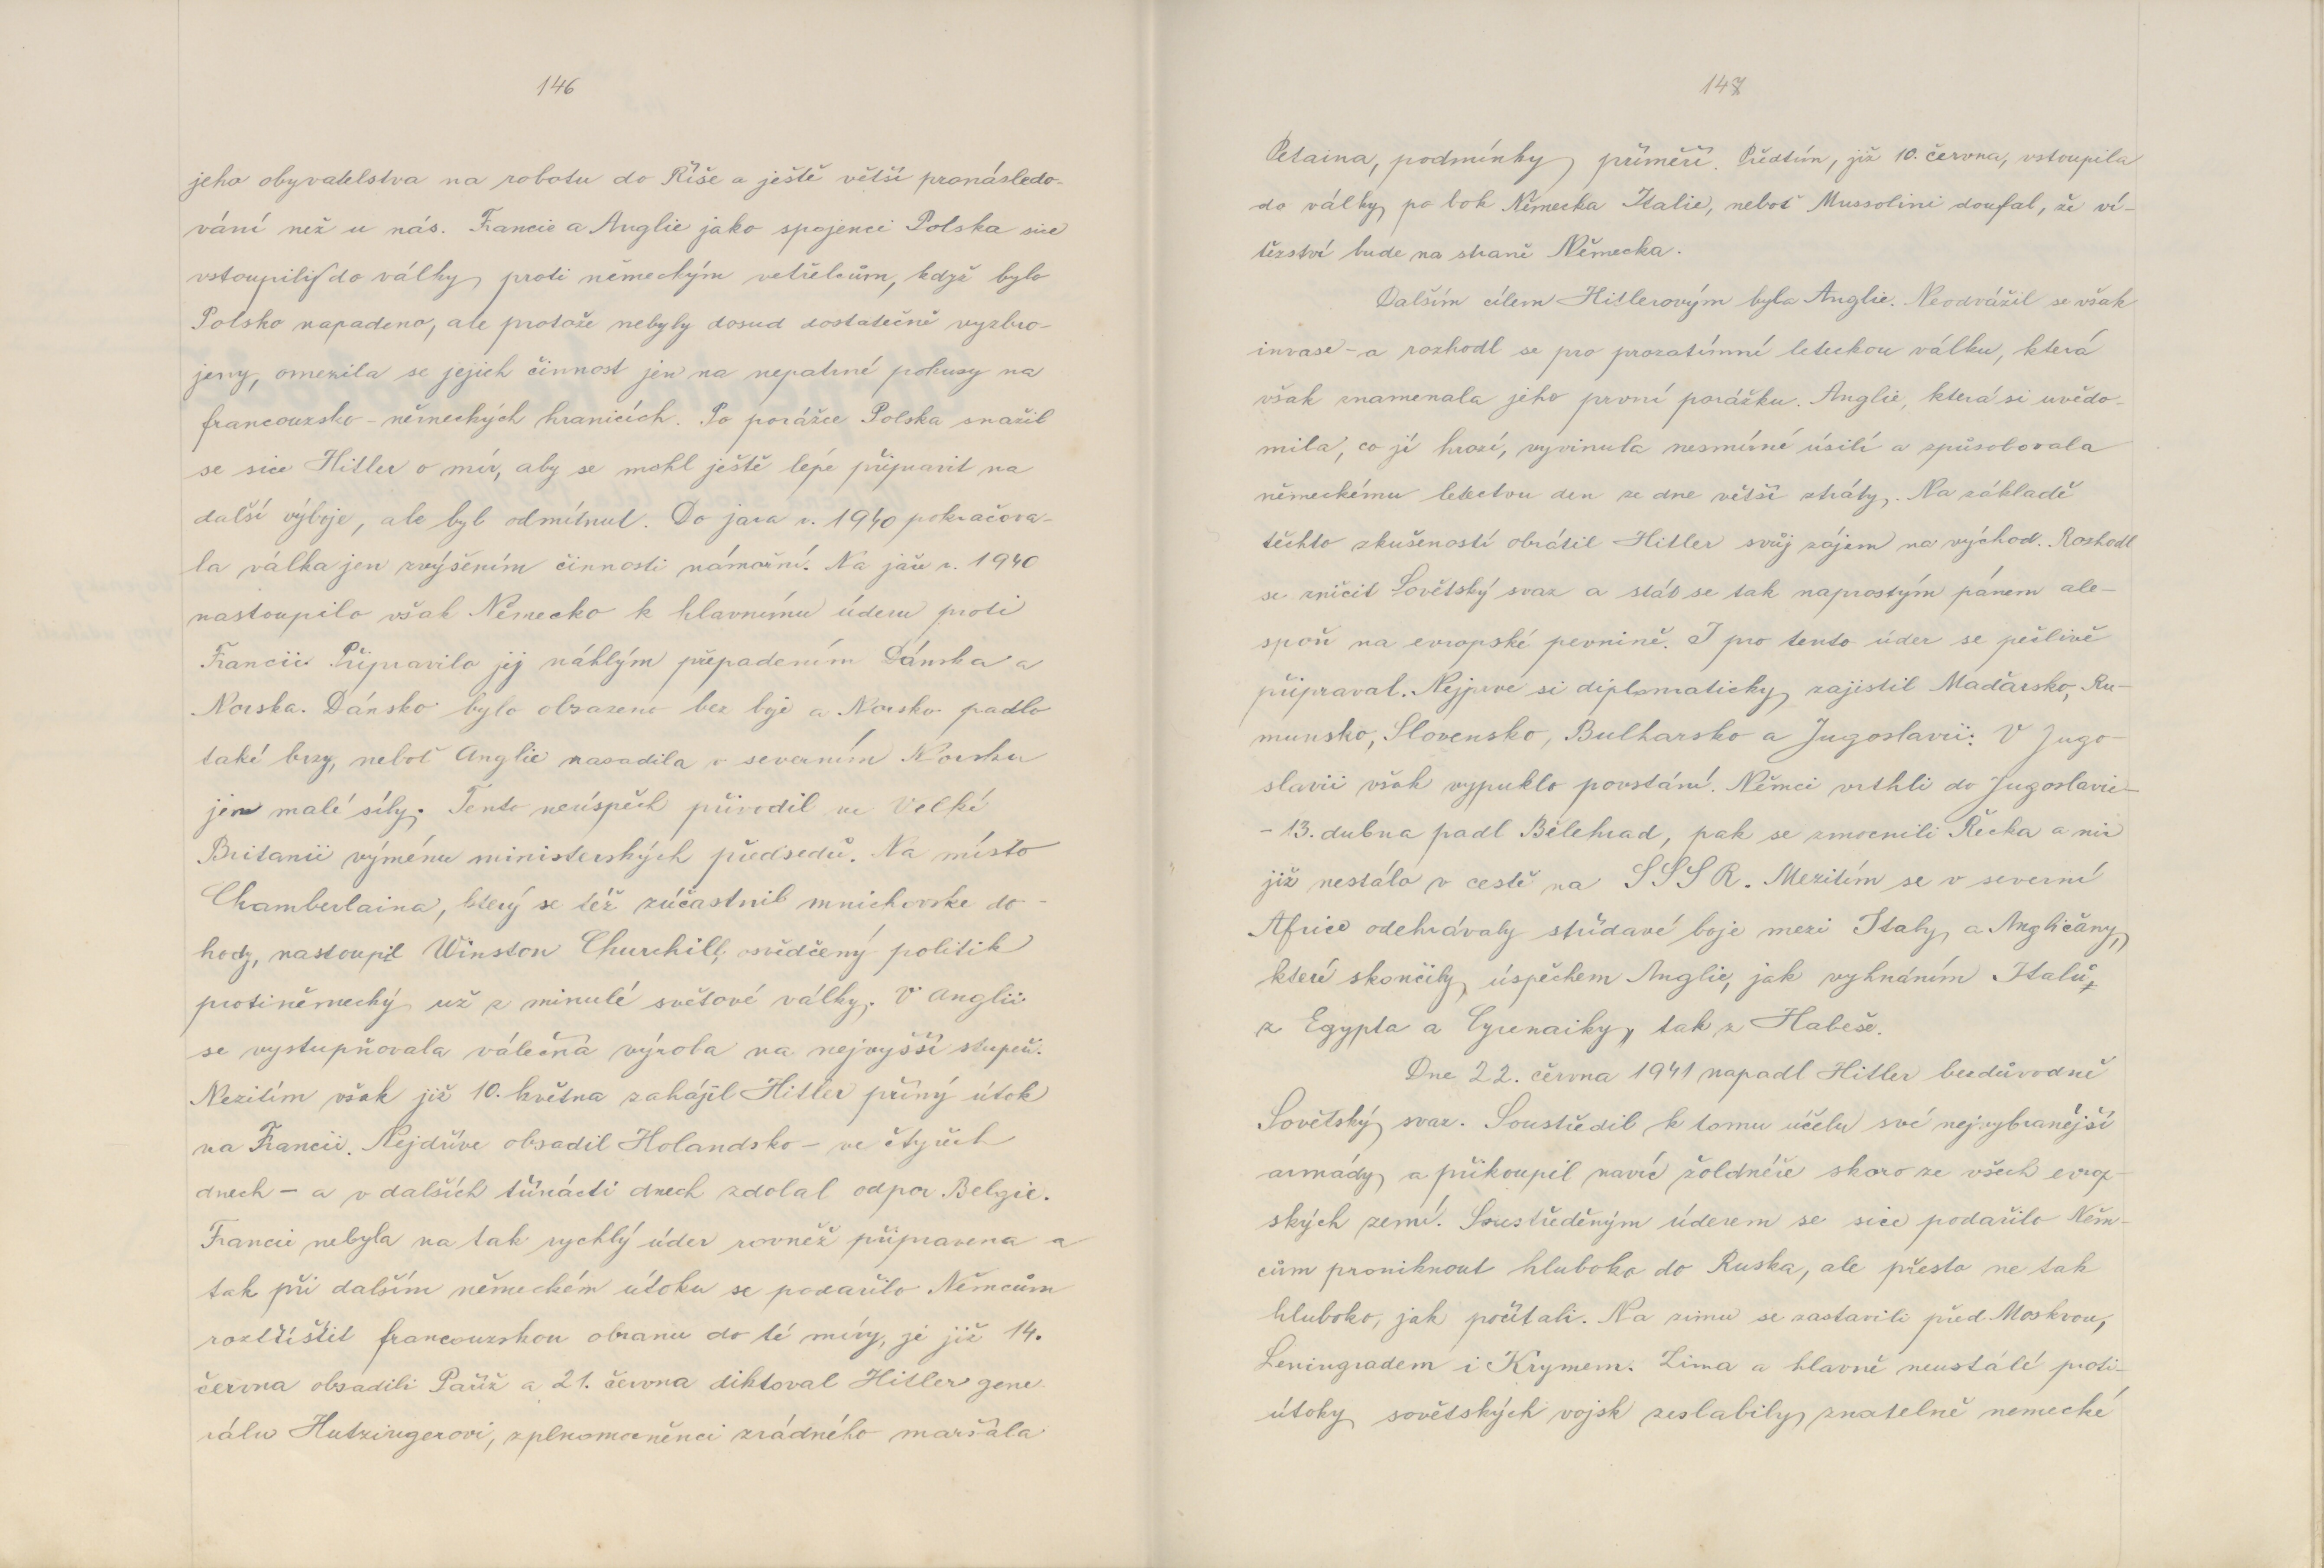 146
jeho obyvatelstva na robotu do Říše a ještě větší pronásledo-
vání než u nás. Francie a Anglie jako spojenci Polska sice
vstoupily do války proti německým vetřelcům, když bylo
Polsko napadeno, ale protože nebyly dosud dostatečně vyzbro-
jeny, omezila se jejich činnost jen na nepatrné pokusy na
francouzsko-německých hranicích. Po porážce Polska snažil
se sice Hitler o mír, aby se mohl ještě lépe připravit na
další výboje, ale byl odmítnut. Do jara r. 1940 pokračova-
la válka jen zvýšením činnosti námořní. Na jaře r. 1940
nastoupilo však Německo k hlavnímu úderu proti
Francii. Připravilo jej náhlým přepadením Dánska a
Norska. Dánsko bylo obsazeno bez boje a Norsko padlo
také brzy, neboť Anglie nasadila v severním Norsku
jen malé síly. Tento neúspěch přivodil ve Velké
Britanii výměnu ministerských předsedů. Na místo
Chamberlaina, který se též zúčastnil mnichovske do-
hody, nastoupil Winston Churchill, osvědčený politik
protiněmecký už z minulé světové války. V Anglii
se vystupňovala válečná výroba na nejvyšší stupeň.
Mezitím však již 10. května zahájil Hitler přímý útok
na Francii. Nejdříve obsadil Holandsko - ve čtyřech
dnech - a v dalších třinácti dnech zdolal odpor Belgie.
Francie nebyla na tak rychlý úder rovněž připravena a
tak při dalším německém útoku se podařilo Němcům
roztříštit francouzskou obranu do té míry, že již 14.
června obsadili Paříž a 21. června diktoval Hitler gene-
rálu Hutzingerovi, zplnomocněnci zrádného maršála
147
Petaina, podmínky příměří. Předtím, již 10. června, vstoupila
do války po bok Německa Italie, neboť Mussolini doufal, že ví-
tězství bude na straně Německa.
Dalším cílem Hitlerovým byla Anglie. Neodvážil se však
invase - a rozhodl se pro prozatímní leteckou válku, která
však znamenala jeho první porážku. Anglie, která si uvědo-
mila, co jí hrozí, vyvinula nesmírné úsilí a způsobovala
německému letectvu den ze dne větší ztráty. Na základě
těchto zkušeností obrátil Hitler svůj zájem na východ. Rozhodl
se zničit Sovětský svaz a stát se tak naprostým pánem ale-
spoň na evropské pevnině. I pro tento úder se pečlivě
připraval. Nejprve si diplomaticky zajistil Maďarsko, Ru-
munsko, Slovensko, Bulharsko a Jugoslavii. V Jugo-
slavii však vypuklo povstání. Němci vrthli do Jugoslavie -
- 13. dubna padl Bělehrad, pak se zmocnili Řecka a nic
již nestálo v cestě na SSSR. Mezitím se v severní
Africe odehrávaly střídavé boje mezi Italy a Angličany,
které skončily úspěchem Anglie, jak vyhnáním Italů
z Egypta a Cyrenaiky, tak z Habeše.
Dne 22. června 1941 napadl Hitler bezdůvodně
Sovětský svaz. Soustředil k tomu účelu své nejvybranější
armády a přikoupil navíc žoldnéře skoro ze všech evrop-
ských zemí. Soustředěným úderem se sice podařilo Něm-
cům proniknout hluboko do Ruska, ale přesto ne tak
hluboko, jak počítali. Na zimu se zastavili před Moskvou,
Leningradem i Krymem. Zima a hlavně neustálé proti-
útoky sovětských vojsk zeslabily znatelně nemecké